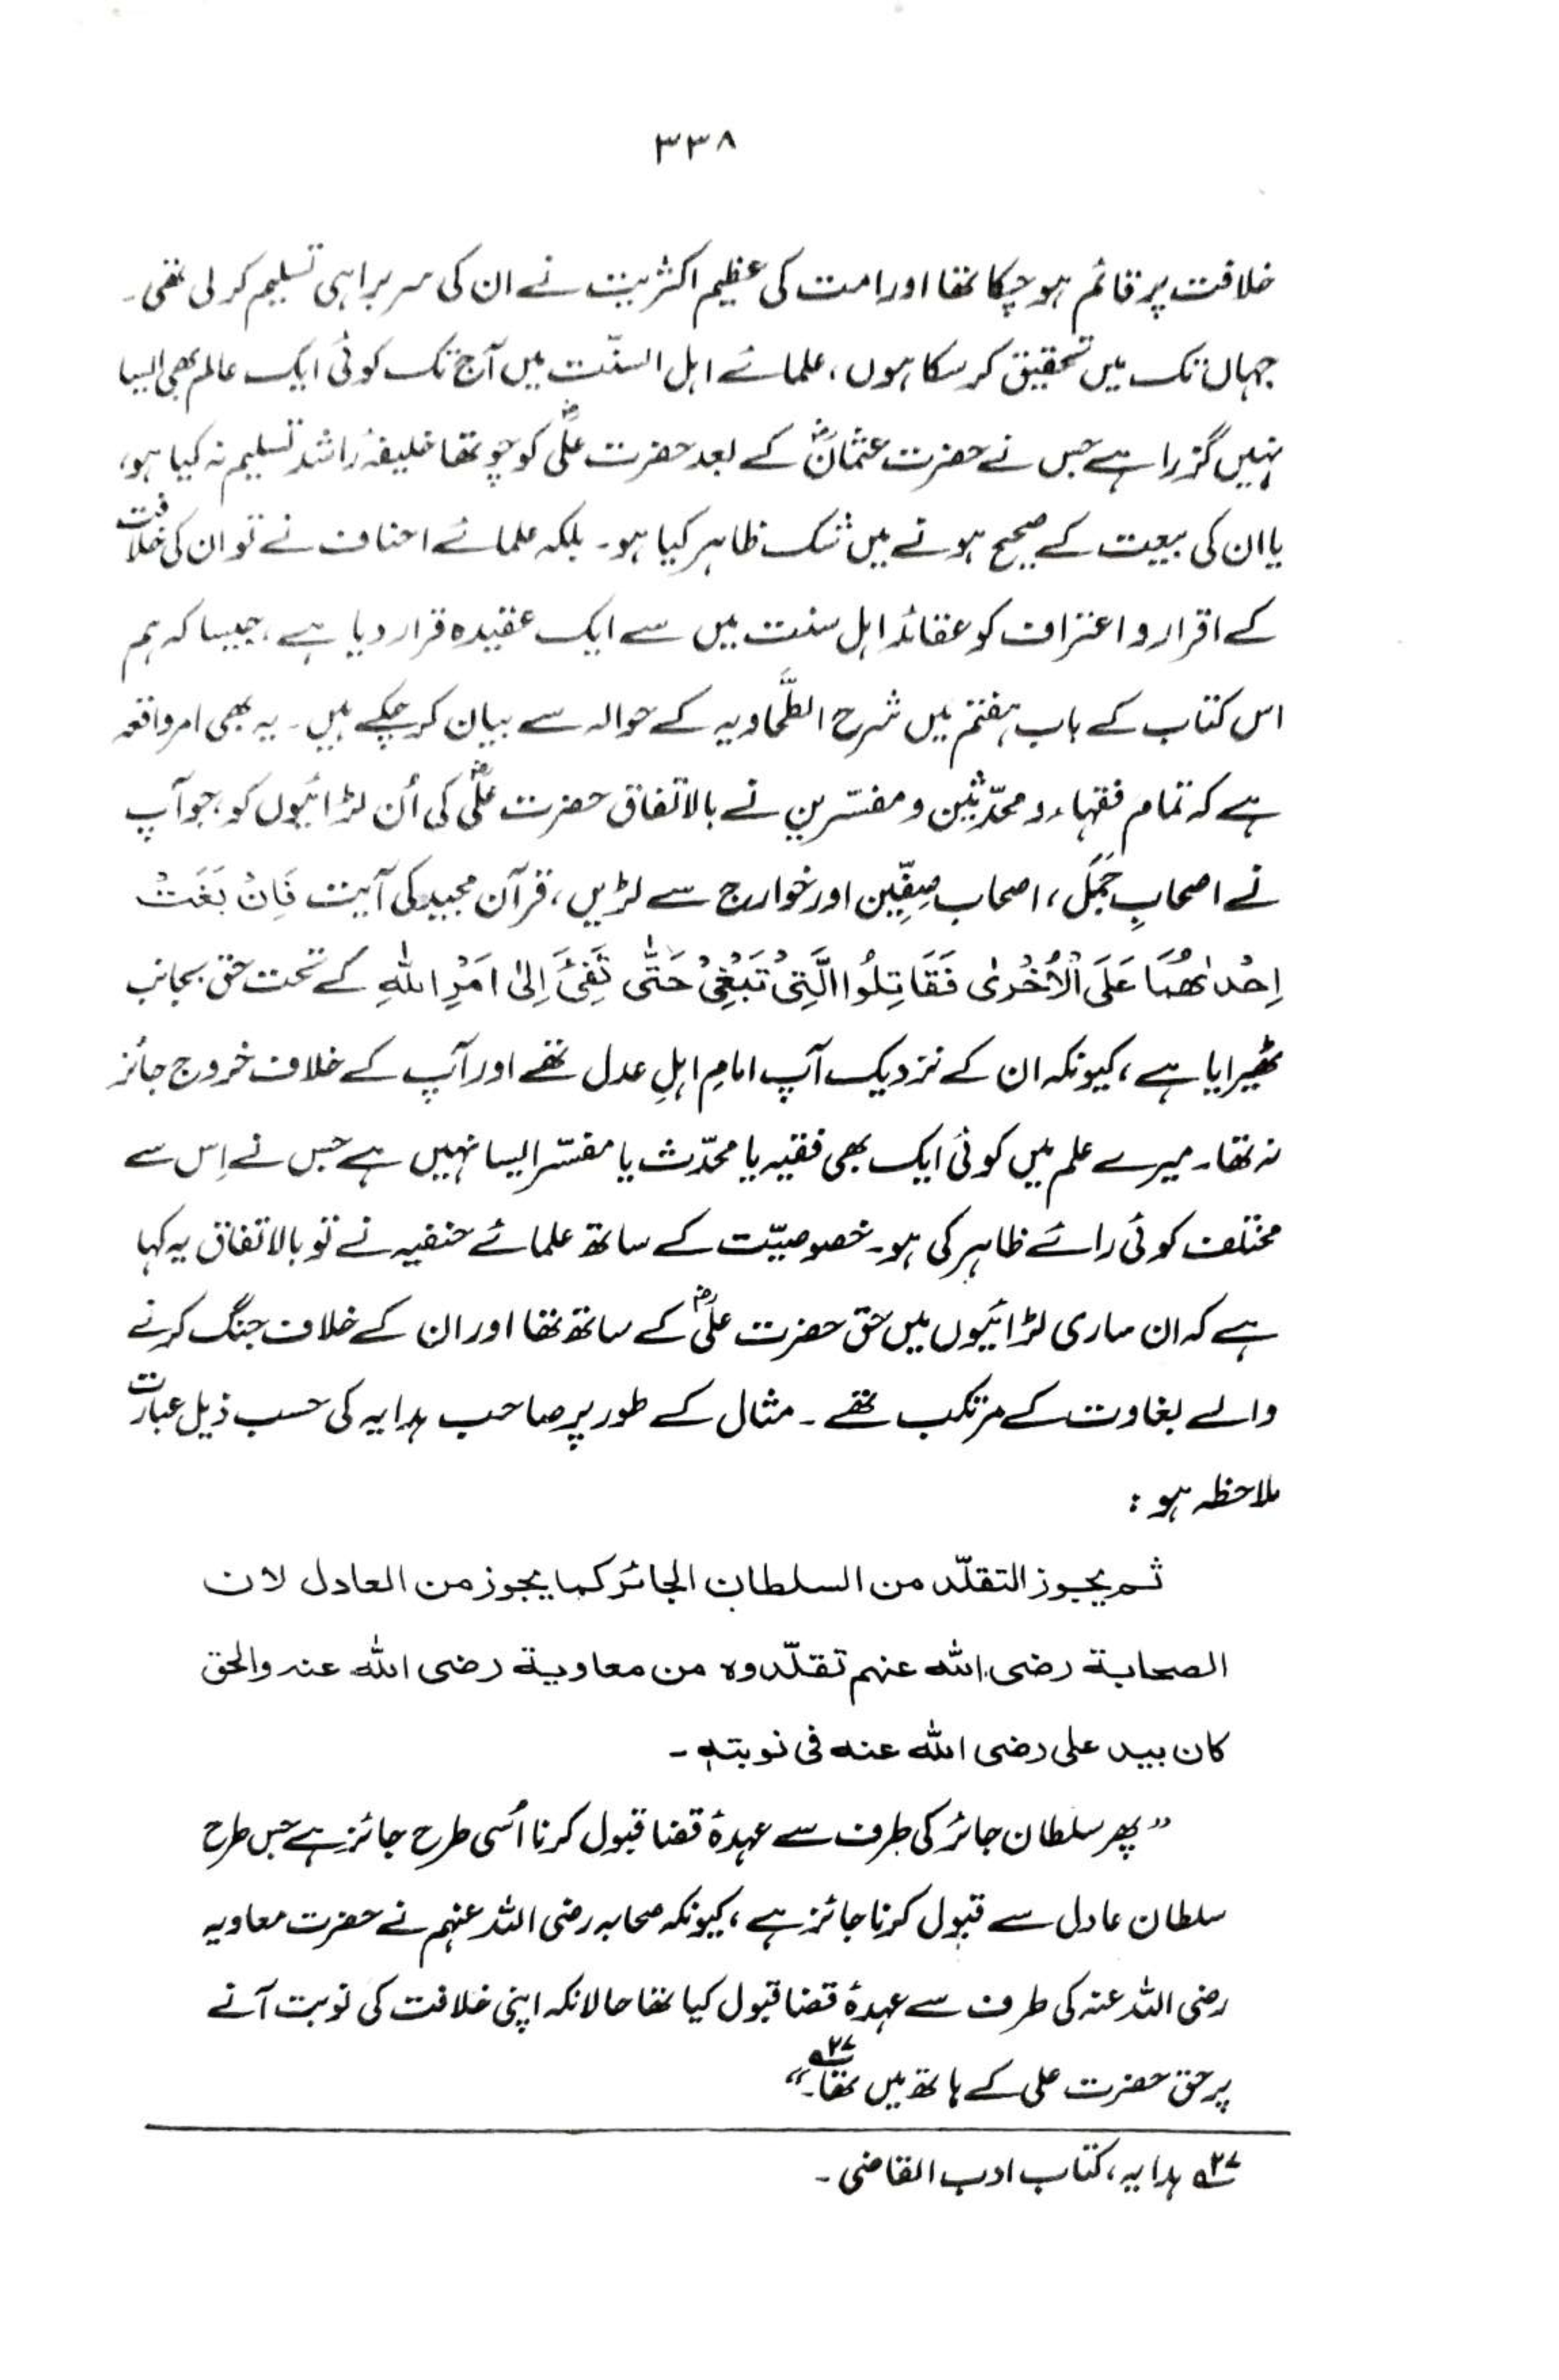 ۳۳۸
خلافت پر قائم ہو چکا تھا اور امت کی عظیم اکثریت نے ان کی سربراہی تسلیم کر لی تھی۔
جہاں تک میں تحقیق کر سکا ہوں، علمائے اہل السنّت میں آج تک کوئی ایک عالم بھی ایسا
نہیں گزرا ہے جس نے حضرت عثمانؓ کے بعد حضرت علیؓ کو چوتھا خلیفۂ راشد تسلیم نہ کیا ہو،
یا ان کی بیعت کے صحیح ہونے میں شک ظاہر کیا ہو۔ بلکہ علمائے احناف نے تو ان کی خلافت
کے اقرار و اعتراف کو عقائد اہل سنت میں سے ایک عقیدہ قرار دیا ہے، جیسا کہ ہم
اس کتاب کے باب ہفتم میں شرح الطَّحاویہ کے حوالہ سے بیان کر چکے ہیں۔ یہ بھی امر واقعہ
ہے کہ تمام فقہاء و محدّثین و مفسّرین نے بالاتفاق حضرت علیؓ کی اُن لڑائیوں کو، جو آپ
نے اصحابِ جَمَل، اصحاب صِفِّین اور خوارج سے لڑیں، قرآن مجید کی آیت فَاِنْ بَغَتْ
اِحْدٰىهُمَا عَلَى الْاُخْرٰى فَقَاتِلُوا الَّتِیْ تَبْغِیْ حَتّٰى تَفِیْٓءَ اِلٰى اَمْرِ اللهِ کے تحت حق بجانب
ٹھیرایا ہے، کیونکہ ان کے نزدیک آپ امامِ اہلِ عدل تھے اور آپ کے خلاف خروج جائز
نہ تھا۔ میرے علم میں کوئی ایک بھی فقیہ یا محدّث یا مفسّر ایسا نہیں ہے جس نے اِس سے
مختلف کوئی رائے ظاہر کی ہو۔ خصوصیّت کے ساتھ علمائے حنفیہ نے تو بالاتفاق یہ کہا
ہے کہ ان ساری لڑائیوں میں حق حضرت علیؓ کے ساتھ تھا اور ان کے خلاف جنگ کرنے
والے بغاوت کے مرتکب تھے۔ مثال کے طور پر صاحب ہدایہ کی حسب ذیل عبارت
ملاحظہ ہو:
ثم يجوز التقلّد من السلطان الجائر كما يجوز من العادل لان
الصحابة رضى الله عنهم تقلّدوه من معاوية رضى الله عنه والحق
كان بيد على رضى الله عنه فى نوبته۔
”پھر سلطان جائر کی طرف سے عہدۂ قضا قبول کرنا اُسی طرح جائز ہے جس طرح
سلطان عادل سے قبول کرنا جائز ہے، کیونکہ صحابہ رضی اللہ عنہم نے حضرت معاویہ
رضی اللہ عنہ کی طرف سے عہدۂ قضا قبول کیا تھا حالانکہ اپنی خلافت کی نوبت آنے
پر حق حضرت علی کے ہاتھ میں تھا۔“ ۲۷؎
۲۷؎ ہدایہ، کتاب ادب القاضی۔